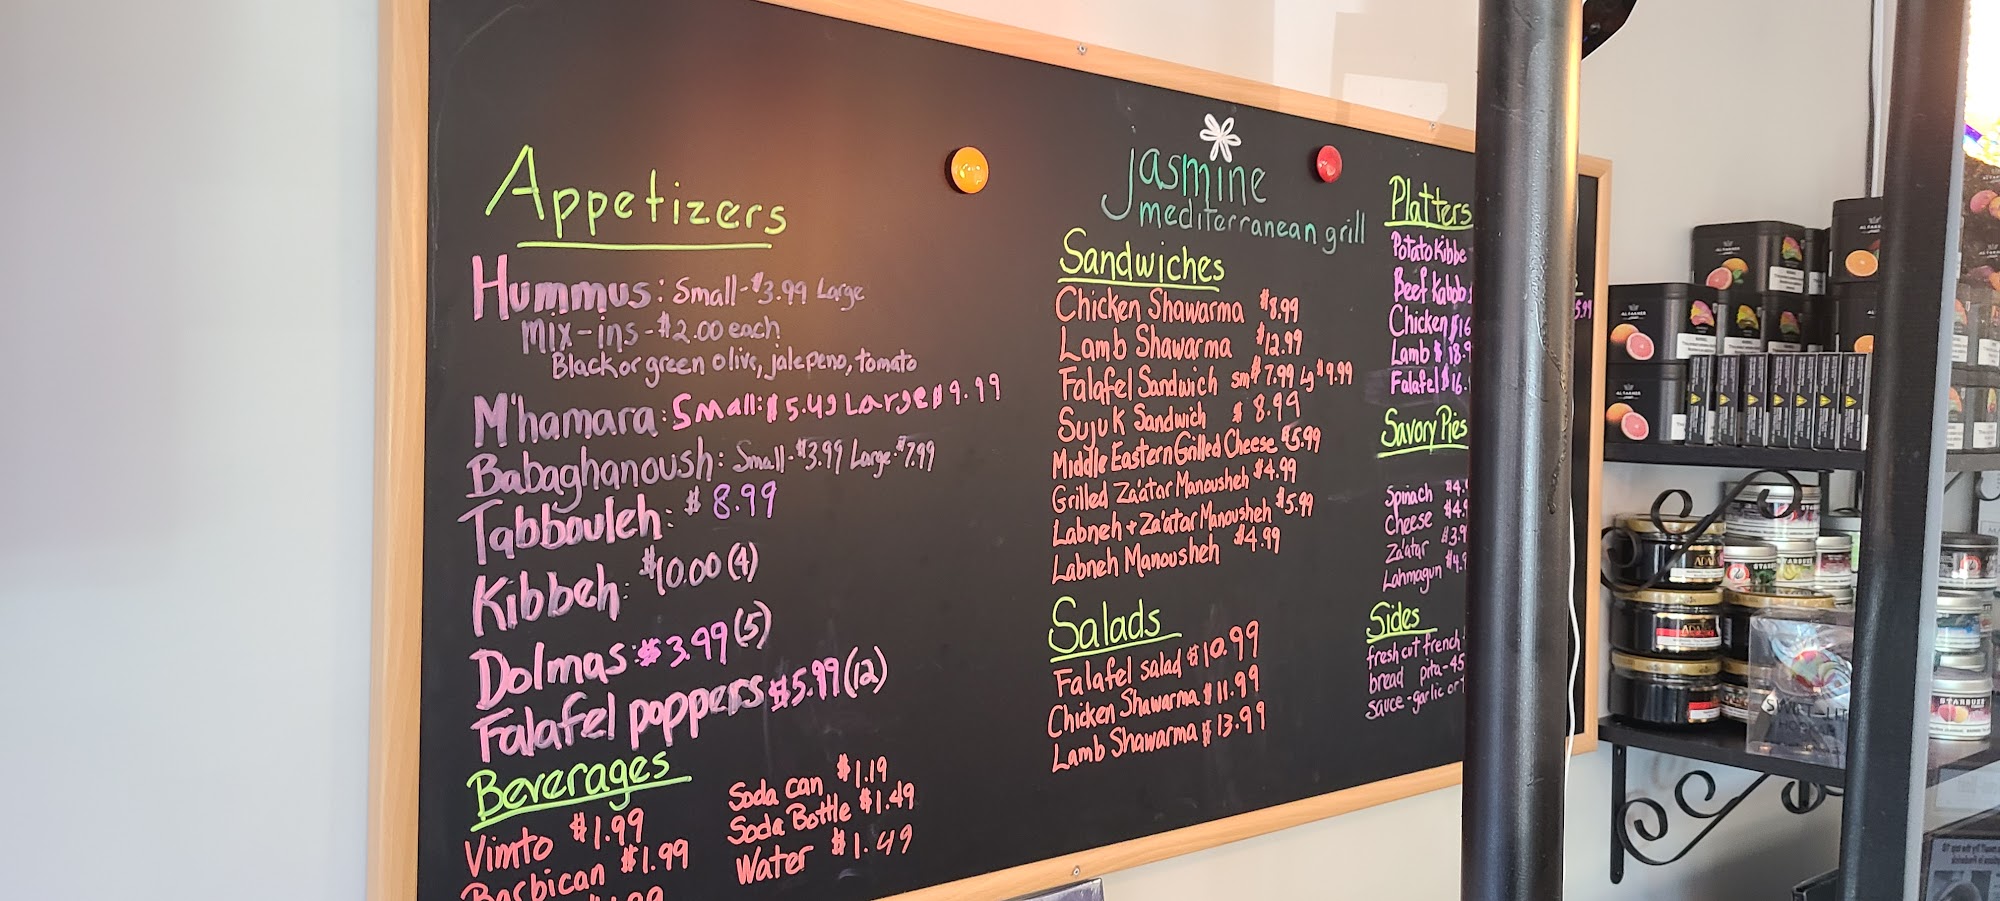 Appetizers
Hummus: Small-$3.99 Large
mix-ins-$2.00 each
Black or green olive, jalepeno, tomato
M'hamara: Small:$5.49 Large$9.99
Babaghanoush: Small-$3.99 Large-$7.99
Tabbouleh: $8.99
Kibbeh: $10.00(4)
Dolmas:$3.99(5)
Falafel poppers$5.99(12)
Beverages
Vimto $1.99
Barbican $1.99
Soda can $1.19
Soda Bottle $1.49
Water $1.49
Jasmine
mediterranean grill
Sandwiches
Chicken Shawarma $8.99
Lamb Shawarma $12.99
Falafel Sandwich sm$7.99 Lg$9.99
Sujuk Sandwich $8.99
Middle Eastern Grilled Cheese $5.99
Grilled Za'atar Manousheh $4.99
Labneh + Za'atar Manousheh $5.99
Labneh Manousheh $4.99
Salads
Falafel salad $10.99
Chicken Shawarma $11.99
Lamb Shawarma $13.99
Platters
Potato Kibbe
Beef Kabob
Chicken $16
Lamb $18.9
Falafel $16.
5.99
Savory Pies
Spinach $4.
Cheese $4.9
Za'atar $3.9
Lahmagun $4.9
Sides
fresh cut french
bread pita-45
sauce-garlic or
ALTAKHER
ADALYA
STARBUZZ
STARBUZZ